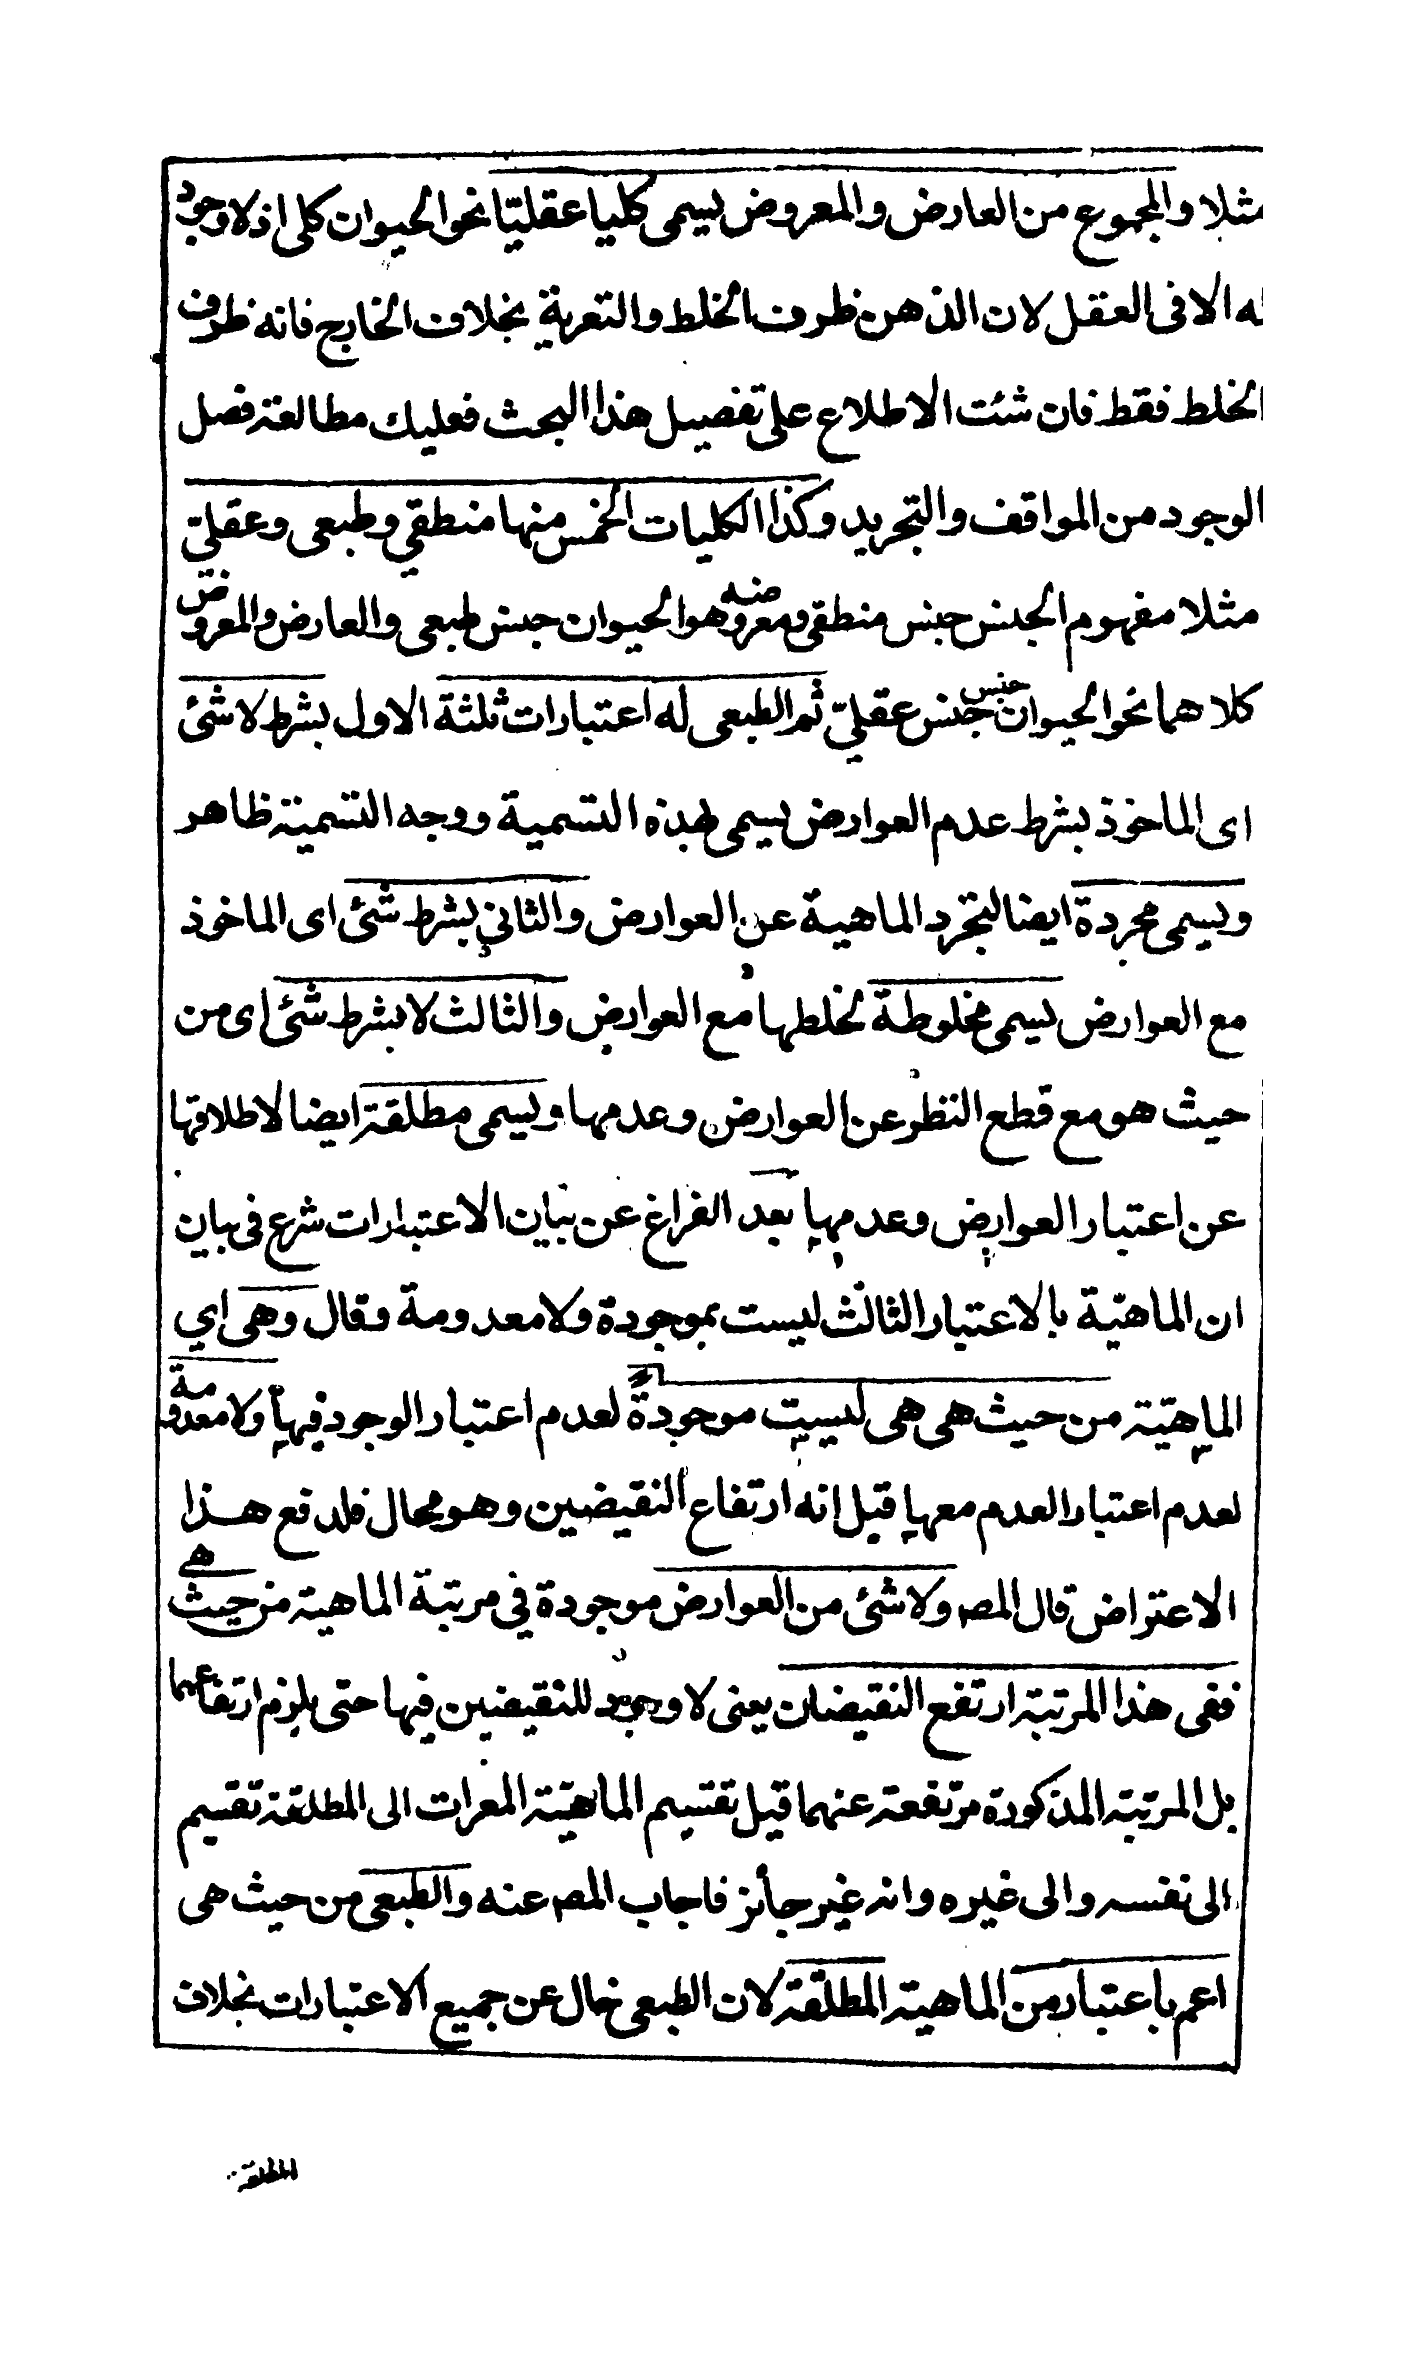 مثلا والمجموع من العارض والمعروض يسمى كليا عقليّا نحو الحيوان كلى اذ لا وجود
له الا فى العقل لان الذهن ظرف الخلط والتعرية بخلاف الخارج فانه ظرف
الخلط فقط فان شئت الاطلاع على تفصيل هذا البحث فعليك مطالعة فصل
الوجود من المواقف والتجريد وكذا الكليات الخمس منها منطقي وطبعى وعقليّ
مثلا مفهوم الجنس جنس منطقى ومعروضه وهو الحيوان جنس طبعى والعارض والمعروض
كلاهما نحو الحيوان جنس جنس عقليّ ثم الطبعى له اعتبارات ثلثة الاول بشرط لا شئ
اى الماخوذ بشرط عدم العوارض يسمى بهذه التسمية ووجه التسمية ظاهر
ويسمى مجردة ايضا لتجرد الماهية عن العوارض والثاني بشرط شئ اى الماخوذ
مع العوارض يسمى مخلوطة لخلطها مع العوارض والثالث لا بشرط شئ اى من
حيث هو مع قطع النظر عن العوارض وعدمها ويسمى مطلقة ايضا لاطلاقها
عن اعتبار العوارض وعدمها بعد الفراغ عن بيان الاعتبارات شرع فى بيان
ان الماهيّة بالاعتبار الثالث ليست بموجودة ولا معدومة وقال وهى اي
الماهيّة من حيث هى هى ليست موجودة لعدم اعتبار الوجود فيها ولا معدومة
لعدم اعتبار العدم معها قيل انه ارتفاع النقيضين وهو محال فلدفع هذا
الاعتراض قال المصـ ولا شئ من العوارض موجودة في مرتبة الماهية من حيث هى
ففى هذا المرتبة ارتفع النقيضان يعنى لا وجود للنقيضين فيها حتى يلزم ارتفاعهما
بل المرتبة المذكورة مرتفعة عنهما قيل تقسيم الماهيّة المعرات الى المطلقة تقسيم
الى نفسه والى غيره وانه غير جائز فاجاب المصـ عنه والطبعى من حيث هى
اعم باعتبار من الماهية المطلقة لان الطبعى خال عن جميع الاعتبارات بخلاف
المطلقة